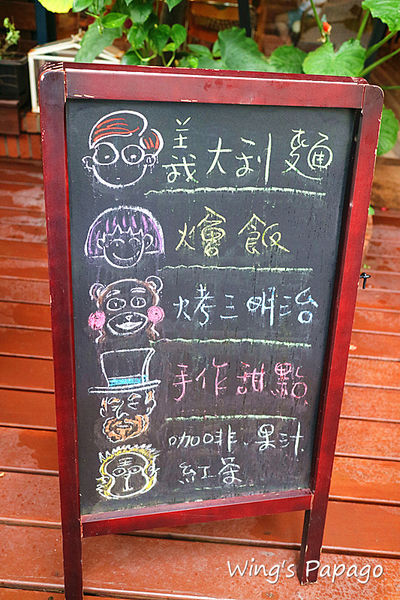 義大利麵
燴飯
烤三明治
手作甜點
咖啡.果汁
紅茶
Wing's Papago